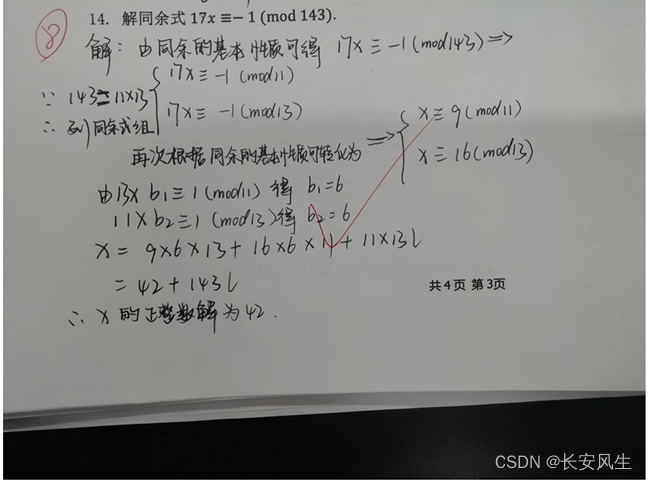 8
14. 解同余式 17x ≡− 1 (mod 143).
解: 由同余的基本性质可得 17x ≡ -1 (mod143) =>
∵ 143=11×13 { 17x ≡ -1 (mod11)
∴ 列同余式组 { 17x ≡ -1 (mod13)
再次根据同余的基本性质可转化为 => { x ≡ 9 (mod11)
x ≡ 16 (mod13)
由13× b₁ ≡ 1 (mod11) 得 b₁=6
11 × b₂ ≡ 1 (mod13) 得 b₂ = 6
x = 9×6×13 + 16×6×11 + 11×13 l
= 42 + 143 l
∴ x 的正整数解为 42.
共 4 页 第 3页
CSDN @长安风生